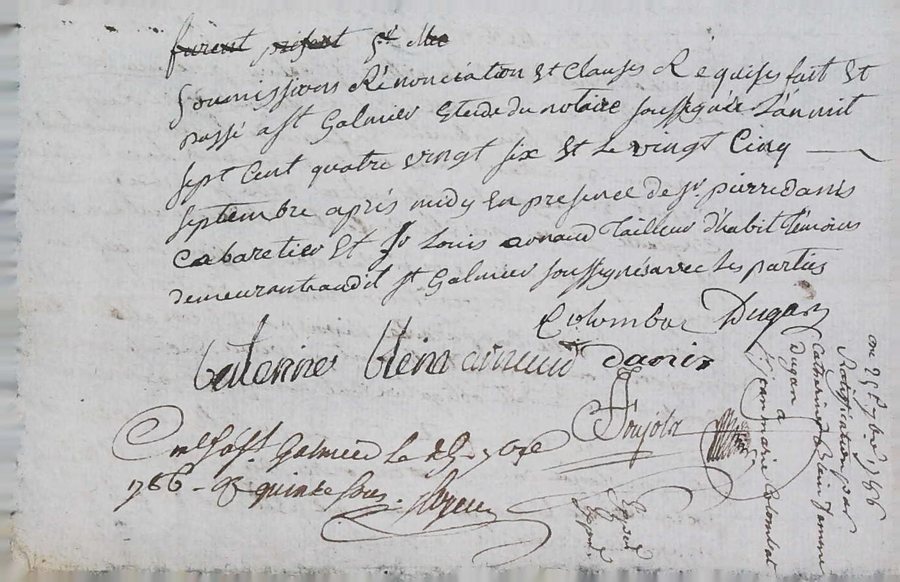 furent present Sr Mre
Soumissions Rénonciation Et Clauses Requises fait Et
passé a St Galmier Etude du notaire soussigné L'an mil
sept Cent quatre vingt six Et Le vingt Cinq
septembre après midy En presence de Sr pierre danis
Cabaretier Et Sr Louis arnaud Tailleur d'habit Témoins
demeurant audit St Galmier soussignés avec Les parties
Colombat Dugas
Caterine blein arnaud danis
St Galmier Le 7bre
1786 - quinze sous
on 25e 7bre 1786
Ratification par
Catherine Blein femme
Dugas a
Sr jean marie Colombat